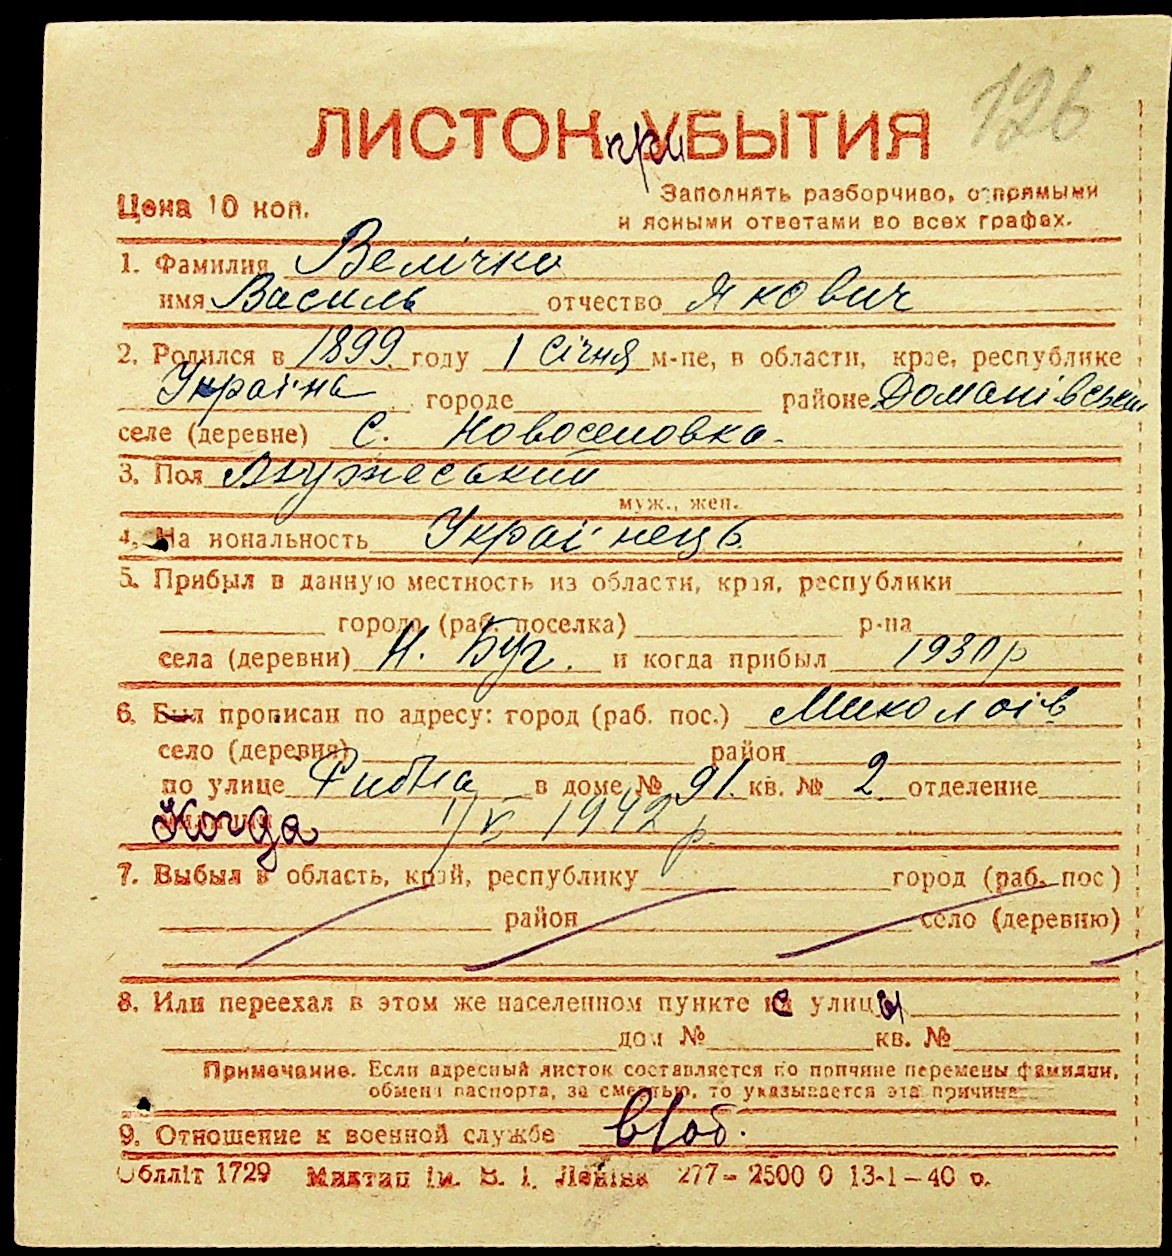 126
ЛИСТОК при УБЫТИЯ
Цена 10 коп.
Заполнять разборчиво, с прямыми
и ясными ответами во всех графах.
1. Фамилия Велічко
имя Василь отчество Якович
2. Родился в 1899 году 1 Січня м-це, в области, крае, республике
Україна городе районе Доманівськ
селе (деревне) с. Новоселовка.
3. Пол Мужеський
муж., жен.
4. На иональность Українець
5. Прибыл в данную местность из области, края, республики
города (раб. поселка) р-на
села (деревни) Н. Буг. и когда прибыл 1930 р
6. Был прописан по адресу: город (раб. пос.) Миколаїв
село (деревня) район
по улице Рибна в доме № 91. кв. № 2 отделение
Когда 1/V 1942 р.
7. Выбыл в область, край, республику город (раб. пос)
район село (деревню)
8. Или переехал в этом же населенном пункте с улицы
дом № кв. №
Примечание. Если адресный листок составляется по причине перемены фамилии,
обмена паспорта, за смертью, то указывается эта причина
9. Отношение к военной службе в/об.
Облліт 1729 ім. В. І. Леніна 277-2500 0 13-1-40 р.